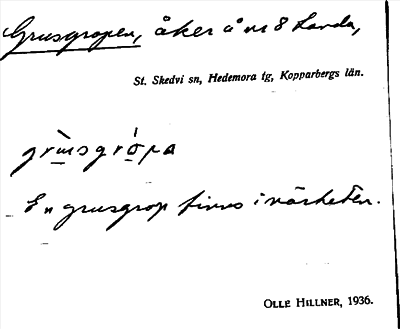 Grusgropen, åker å nr 8 Landa,
St. Skedvi sn, Hedemora tg, Kopparbergs län.
grùsgrópa
En grusgrop finns i närheten.
OLLE HILLNER, 1936.